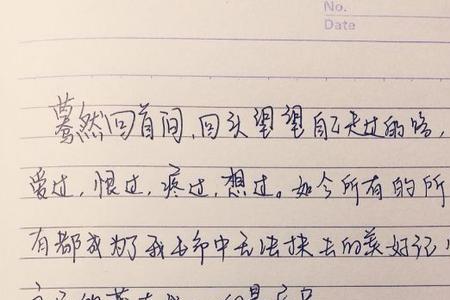 No.
Date
蓦然回首间，回头望望自己走过的路，
爱过，恨过，疼过，想过。如今所有的所
有都成为了我生命中无法抹去的美好记